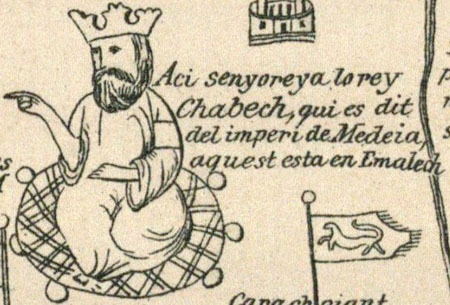 Aci senyoreya lo rey
Chabech, qui es dit
del imperi de Medeia,
aquest esta en Emalech